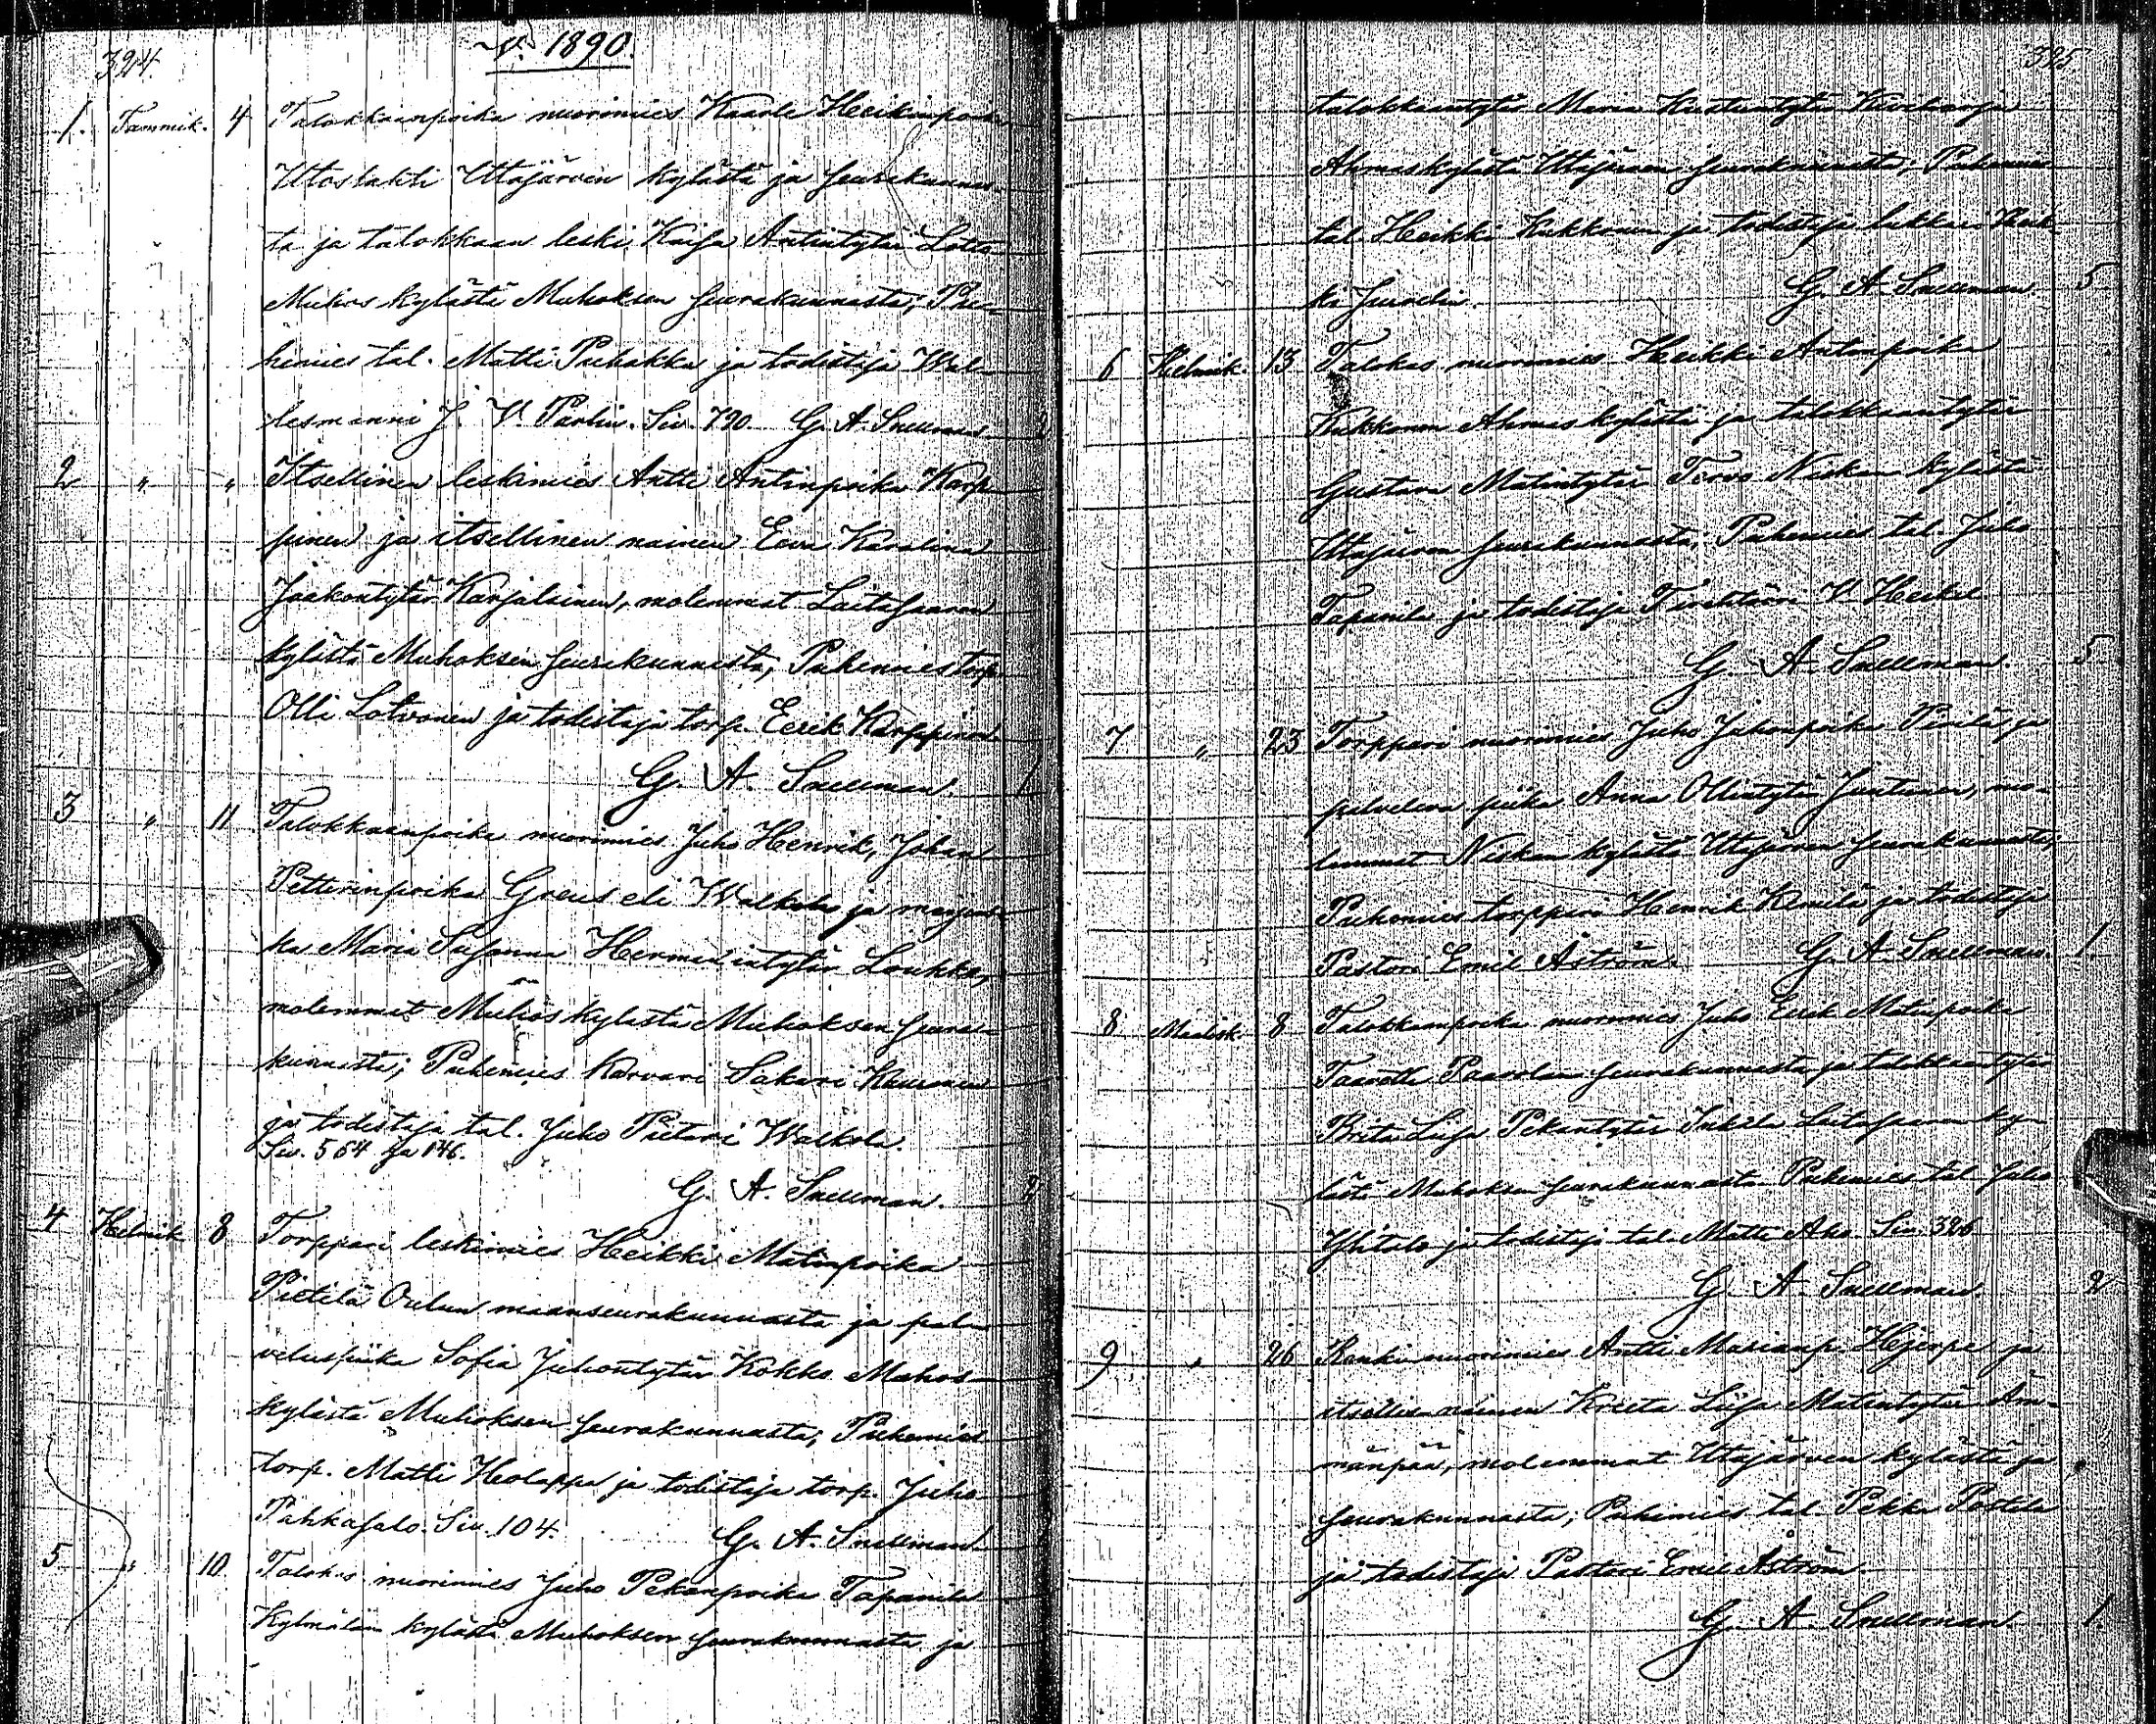 324
v. 1890.
1. Tammik. 4 Talokkaanpoika nuorimies Kaarle Heikinpoika
Utoslahti Utajärven kylästä ja seurakunnas-
ta ja talokkaan leski Kaisa Antintytär
Muhos kylästä Muhoksen seurakunnasta; Pu-
hemies tal. Matti Piehakka ja todistaja Wal-
lesmanni J. V. Parlin. Siv. 790. G. A. Snellman
2 " " Itsellinen leskimies Antti Antinpoika Karp-
pinen ja itsellinen nainen Eeva Karolina
Jaakontytär Karjalainen, molemmat Laitasaaren
kylästä Muhoksen seurakunnasta; Puhemies torp.
Olli Lotvonen ja todistaja torp. Eerik Karppinen.
G. A. Snellman 1
3 " 11 Talokkaanpoika nuorimies Juho Henrik, Johan
Petterinpoika Greus eli Walkola ja
ka Maria Susanna Hermanintytär Loukko,
molemmat Muhos kylästä Muhoksen seura-
kunnasta; Puhemies karvari Sakari
ja todistaja tal. Juho Pietari Walkola.
Siv. 564 ja 146.
G. A. Snellman. 2
4 Helmik 8 Torppari leskimies Heikki Matinpoika
Pietilä Oulun maaseurakunnasta ja pal-
veluspiika Sofia Juhontytär Kokko Muhos
kylästä Muhoksen seurakunnasta; Puhemies
torp. Matti Holappa ja todistaja torp. Juho
Pahkasalo. Siv. 104. G. A. Snellman
5 " 10 Talokas nuorimies Juho Pekanpoika Tapanila
Kylmälän kylästä Muhoksen seurakunnasta ja
325
talokkaantytär Maria Kustaantytär Kiviharju
Ahmaskylästä Utajärven seurakunnasta; Puhemies
tal. Heikki Kukkonen ja todistaja lukkari
G. A. Snellman. 5
6 Helmik. 13 Talokas nuorimies Heikki Antinpoika
Kukkonen Ahmas kylästä ja talokkaantytär
Gustava Matintytär Tervo Niskan kylästä
Utajärven seurakunnasta; Puhemies tal. Juho
Tapanila ja todistaja Tirehtöri V. Heikel
G. A. Snellman. 5
7 " 23 Torppari nuorimies Juho Juhonpoika Pirilä ja
palveleva piika Anna Ollintytär Juntunen, mo-
lemmat Niskan kylästä Utajärven seurakunnasta;
Puhemies torppari Henrik Kemilä ja todistaja
Pastori Emil Åström. G. A. Snellman. 1.
8 Maalisk. 8 Talokkaanpoika nuorimies Juho Eerik Matinpoika
Taavotti Paavolan seurakunnasta ja talokkaantytär
Brita Liisa Pekantytär Jukola Laitasaaren ky-
lästä Muhoksen seurakunnasta Puhemies tal. Juho
Ylitalo ja todistaja tal. Matti Aho. Siv. 326
G. A. Snellman. 2
9 " 26 Renki nuorimies Antti Marianp. Hyerpe ja
itsellis nainen Kreeta Liisa Matintytär Äm-
mänpää, molemmat Utajärven kylästä ja
seurakunnasta; Puhemies tal. Pekka Postila
ja todistaja Pastori Emil Åström.
G. A. Snellman. 1.